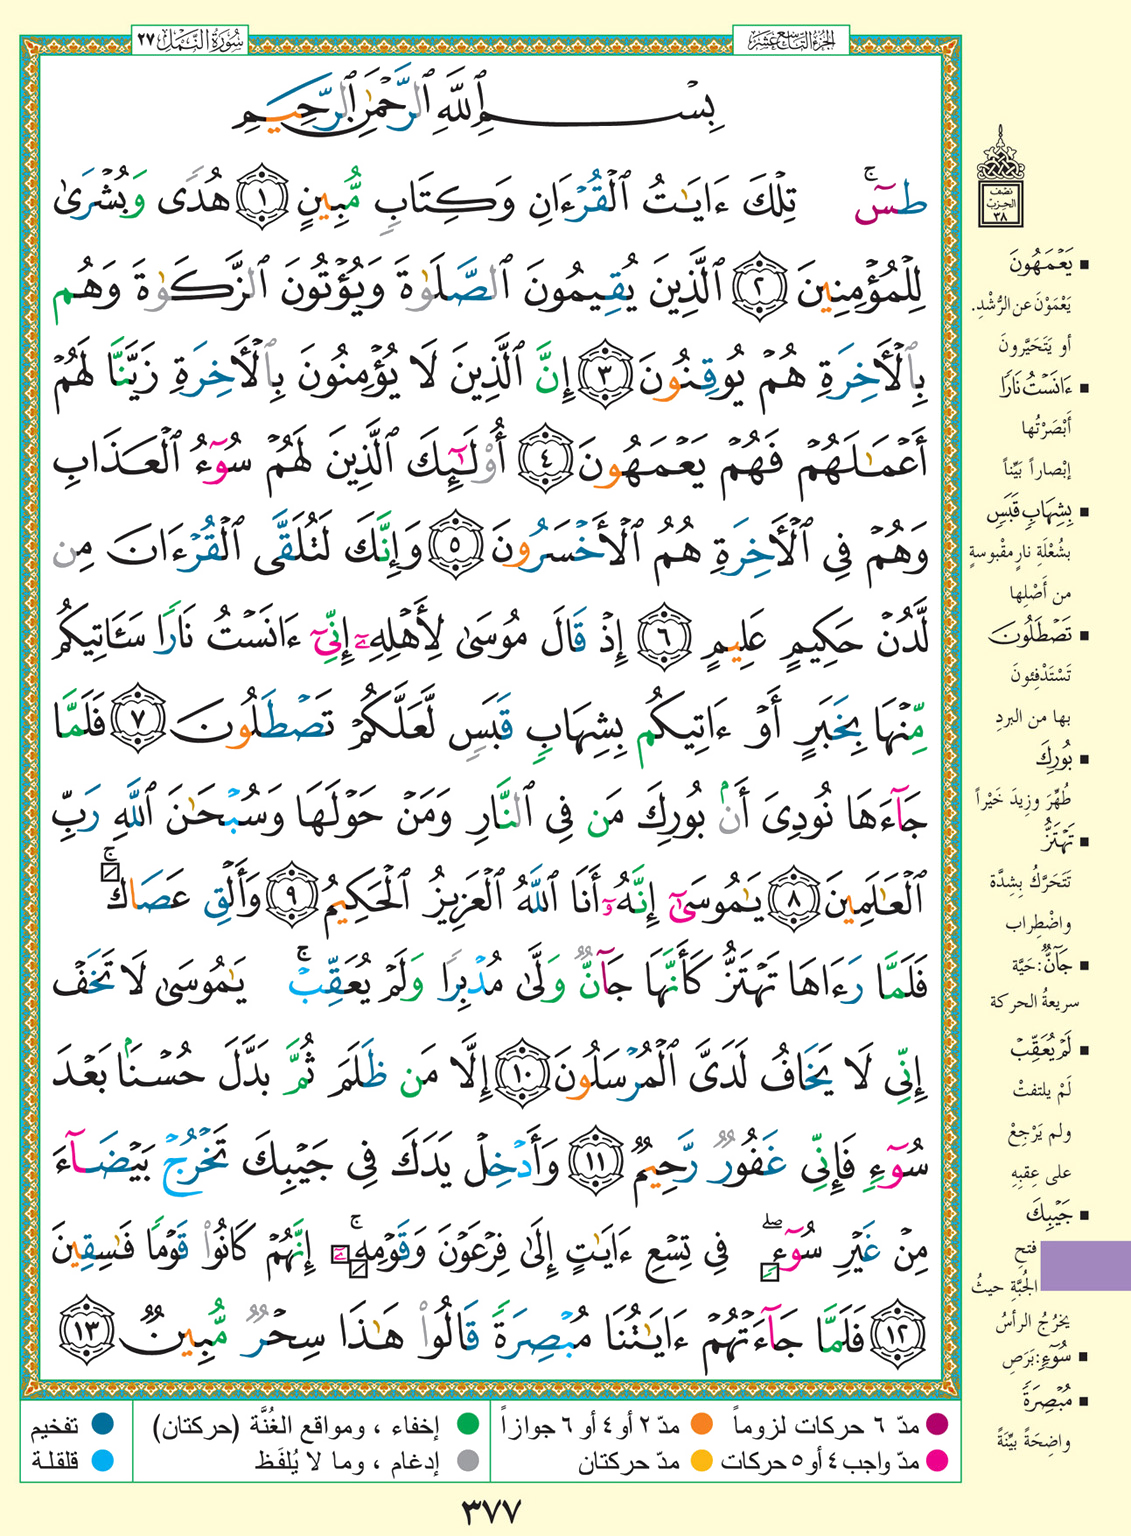 الجزء التاسع عشر
سورة النمل ٢٧
بِسْمِ ٱللَّهِ ٱلرَّحْمَٰنِ ٱلرَّحِيمِ
طسٓۚ تِلْكَ ءَايَٰتُ ٱلْقُرْءَانِ وَكِتَابٍ مُّبِينٍ ١ هُدًى وَبُشْرَىٰ
لِلْمُؤْمِنِينَ ٢ ٱلَّذِينَ يُقِيمُونَ ٱلصَّلَوٰةَ وَيُؤْتُونَ ٱلزَّكَوٰةَ وَهُم
بِٱلْأَخِرَةِ هُمْ يُوقِنُونَ ٣ إِنَّ ٱلَّذِينَ لَا يُؤْمِنُونَ بِٱلْأَخِرَةِ زَيَّنَّا لَهُمْ
أَعْمَٰلَهُمْ فَهُمْ يَعْمَهُونَ ٤ أُوْلَٰٓئِكَ ٱلَّذِينَ لَهُمْ سُوٓءُ ٱلْعَذَابِ
وَهُمْ فِى ٱلْأَخِرَةِ هُمُ ٱلْأَخْسَرُونَ ٥ وَإِنَّكَ لَتُلَقَّى ٱلْقُرْءَانَ مِن
لَّدُنْ حَكِيمٍ عَلِيمٍ ٦ إِذْ قَالَ مُوسَىٰ لِأَهْلِهِۦٓ إِنِّىٓ ءَانَسْتُ نَارًا سَـَٔاتِيكُم
مِّنْهَا بِخَبَرٍ أَوْ ءَاتِيكُم بِشِهَابٍ قَبَسٍ لَّعَلَّكُمْ تَصْطَلُونَ ٧ فَلَمَّا
جَآءَهَا نُودِىَ أَنۢ بُورِكَ مَن فِى ٱلنَّارِ وَمَنْ حَوْلَهَا وَسُبْحَٰنَ ٱللَّهِ رَبِّ
ٱلْعَٰلَمِينَ ٨ يَٰمُوسَىٰٓ إِنَّهُۥٓ أَنَا ٱللَّهُ ٱلْعَزِيزُ ٱلْحَكِيمُ ٩ وَأَلْقِ عَصَاكَۚ
فَلَمَّا رَءَاهَا تَهْتَزُّ كَأَنَّهَا جَآنٌّ وَلَّىٰ مُدْبِرًا وَلَمْ يُعَقِّبْۚ يَٰمُوسَىٰ لَا تَخَفْ
إِنِّى لَا يَخَافُ لَدَىَّ ٱلْمُرْسَلُونَ ١٠ إِلَّا مَن ظَلَمَ ثُمَّ بَدَّلَ حُسْنًۢا بَعْدَ
سُوٓءٍ فَإِنِّى غَفُورٌ رَّحِيمٌ ١١ وَأَدْخِلْ يَدَكَ فِى جَيْبِكَ تَخْرُجْ بَيْضَآءَ
مِنْ غَيْرِ سُوٓءٍۖ فِى تِسْعِ ءَايَٰتٍ إِلَىٰ فِرْعَوْنَ وَقَوْمِهِۦٓۚ إِنَّهُمْ كَانُوا۟ قَوْمًا فَٰسِقِينَ
١٢ فَلَمَّا جَآءَتْهُمْ ءَايَٰتُنَا مُبْصِرَةً قَالُوا۟ هَٰذَا سِحْرٌ مُّبِينٌ ١٣
نصف
الحزب
٣٨
يَعْمَهُونَ
يَعْمَوْنَ عن الرُّشْدِ.
أو يَتَحَيَّرونَ
ءَانَسْتُ نَارًا
أَبْصَرْتُها
إبْصاراً بَيِّناً
بِشِهَابٍ قَبَسٍ
بشُعْلَةِ نارٍ مقْبوسةٍ
من أَصْلِها
تَصْطَلُونَ
تَسْتَدْفِئونَ
بها من البردِ
بُورِكَ
طُهِّرَ وزِيدَ خَيْراً
تَهْتَزُّ
تَتَحَرَّكُ بِشِدَّة
واضْطِراب
جَآنٌّ: حَيَّة
سريعةُ الحركة
لَمْ يُعَقِّبْ
لَمْ يلتفتْ
ولم يَرْجِعْ
على عِقبِهِ
جَيْبِكَ
فتح
الجُبَّةِ حيثُ
يخرُجُ الرأسُ
سُوٓءٍ: بَرَصٍ
مُبْصِرَةً
واضِحَةً بيِّنَةً
مدّ ٦ حركات لزوماً مدّ ٢ أو ٤ أو ٦ جوازاً إخفاء ، ومواقع الغُنَّة (حركتان) تفخيم
مدّ واجب ٤ أو ٥ حركات مدّ حركتان إدغام ، وما لا يُلفَظ قلقلة
٣٧٧